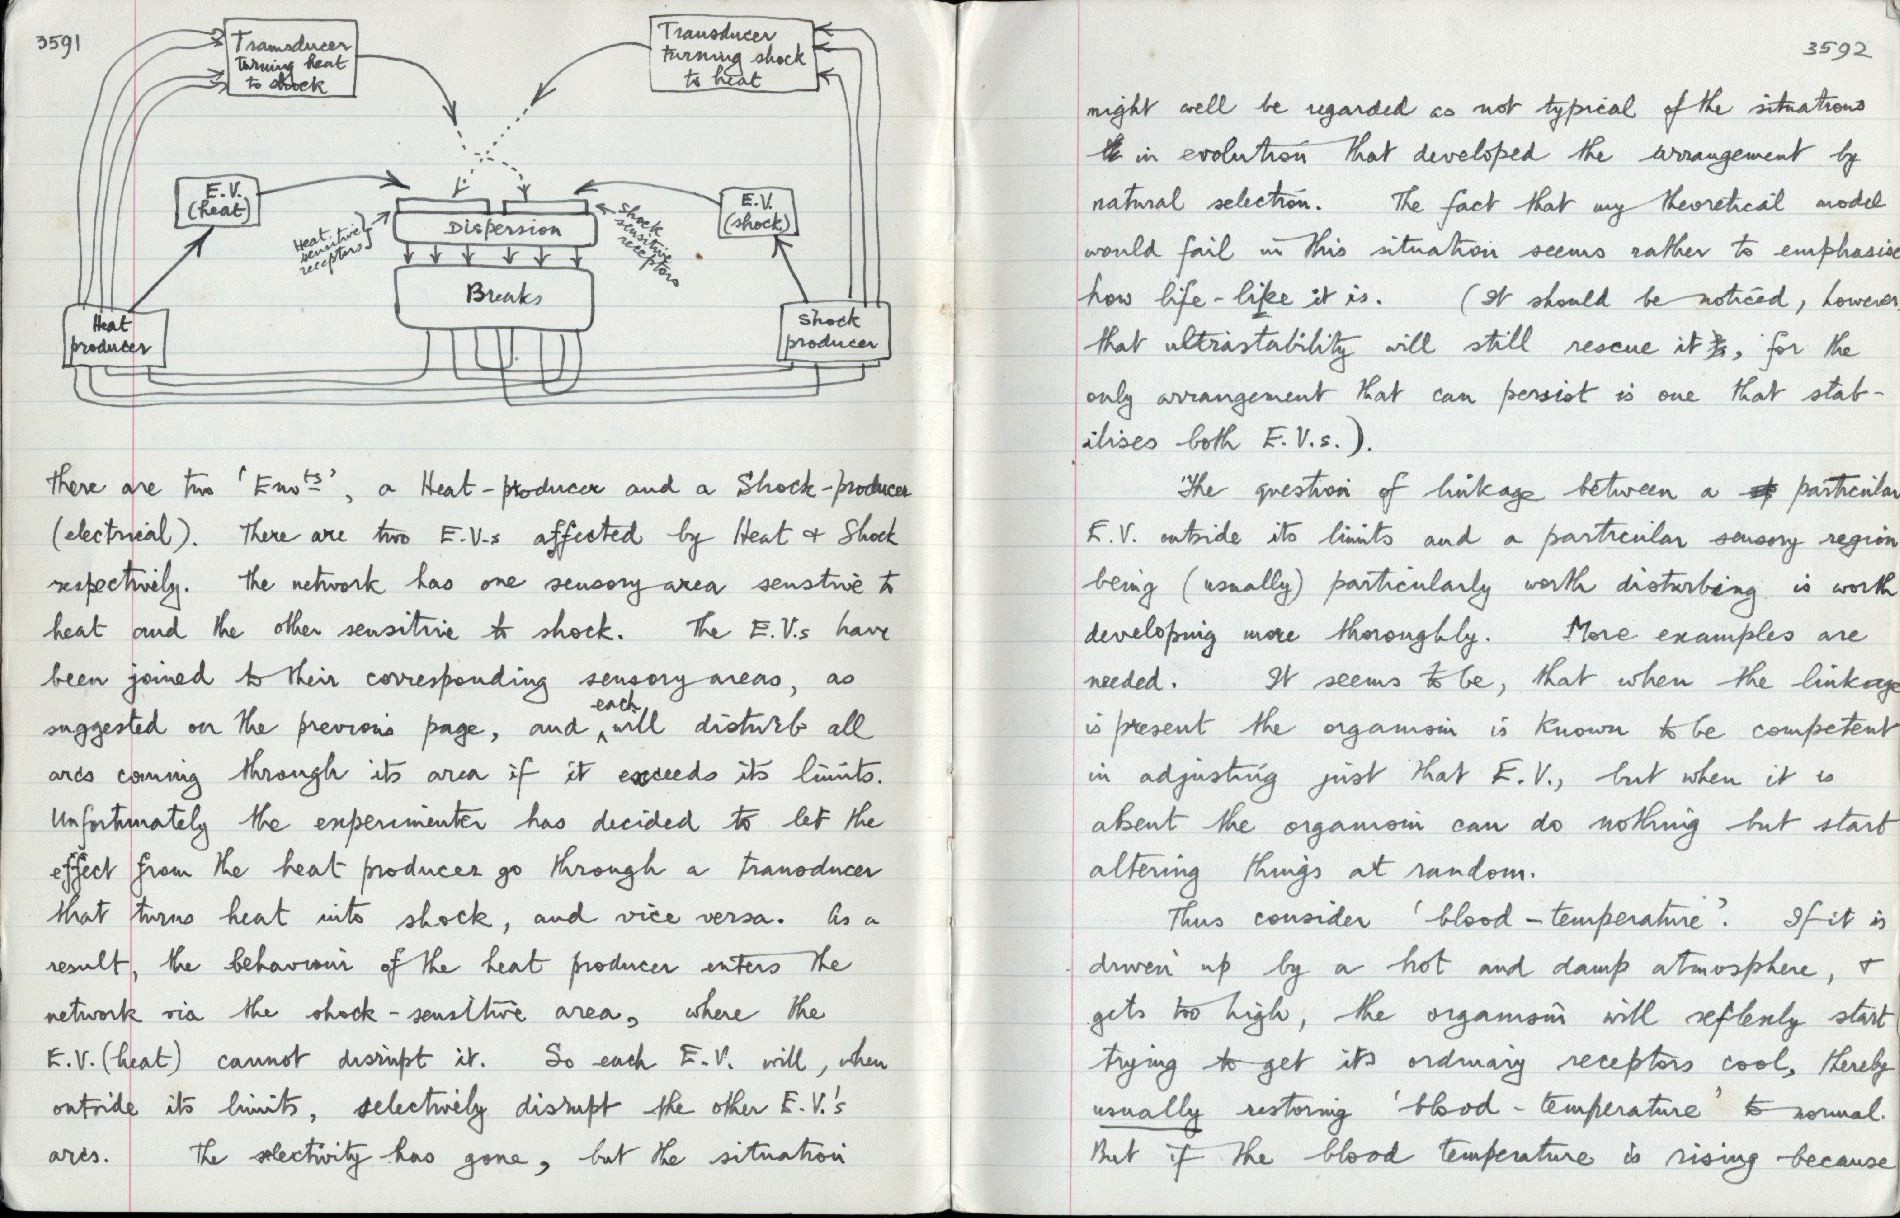 3591
Transducer
turning heat
to shock
Transducer
turning shock
to heat
E.V.
(heat)
E.V.
(shock)
Heat
sensitive
receptors
Shock
sensitive
receptors
Dispersion
Breaks
Heat
producer
Shock
producer
there are two 'Envts', a Heat-producer and a Shock-producer
(electrical). There are two E.V.s affected by Heat & Shock
respectively. The network has one sensory area senstive to
heat and the other sensitive to shock. The E.V.s have
been joined to their corresponding sensory areas, as
suggested on the previous page, and each will disturb all
arcs coming through its area if it exceeds its limits.
Unfortunately the experimenter has decided to let the
effect from the heat producer go through a transducer
that turns heat into shock, and vice versa. As a
result, the behaviour of the heat producer enters the
network via the shock-sensitive area, where the
E.V.(heat) cannot disrupt it. So each E.V. will, when
outside its limits, selectively disrupt the other E.V.'s
arcs. The selectivity has gone, but the situation
3592
might well be regarded as not typical of the situations
in evolution that developed the arrangement by
natural selection. The fact that my theoretical model
would fail in this situation seems rather to emphasise
how life-like it is. (It should be noticed, however
that ultrastability will still rescue it, for the
only arrangement that can persist is one that stab-
ilises both E.V.s.).
The question of linkage between a particular
E.V. outside its limits and a particular sensory region
being (usually) particularly worth disturbing is worth
developing more thoroughly. More examples are
needed. It seems to be, that when the linkage
is present the organism is known to be competent
in adjusting just that E.V., but when it is
absent the organism can do nothing but start
altering things at random.
Thus consider 'blood-temperature'. If it is
driven up by a hot and damp atmosphere, &
gets too high, the organism will reflexly start
trying to get its ordinary receptors cool, thereby
usually restoring 'blood-temperature' to normal.
But if the blood temperature is rising because